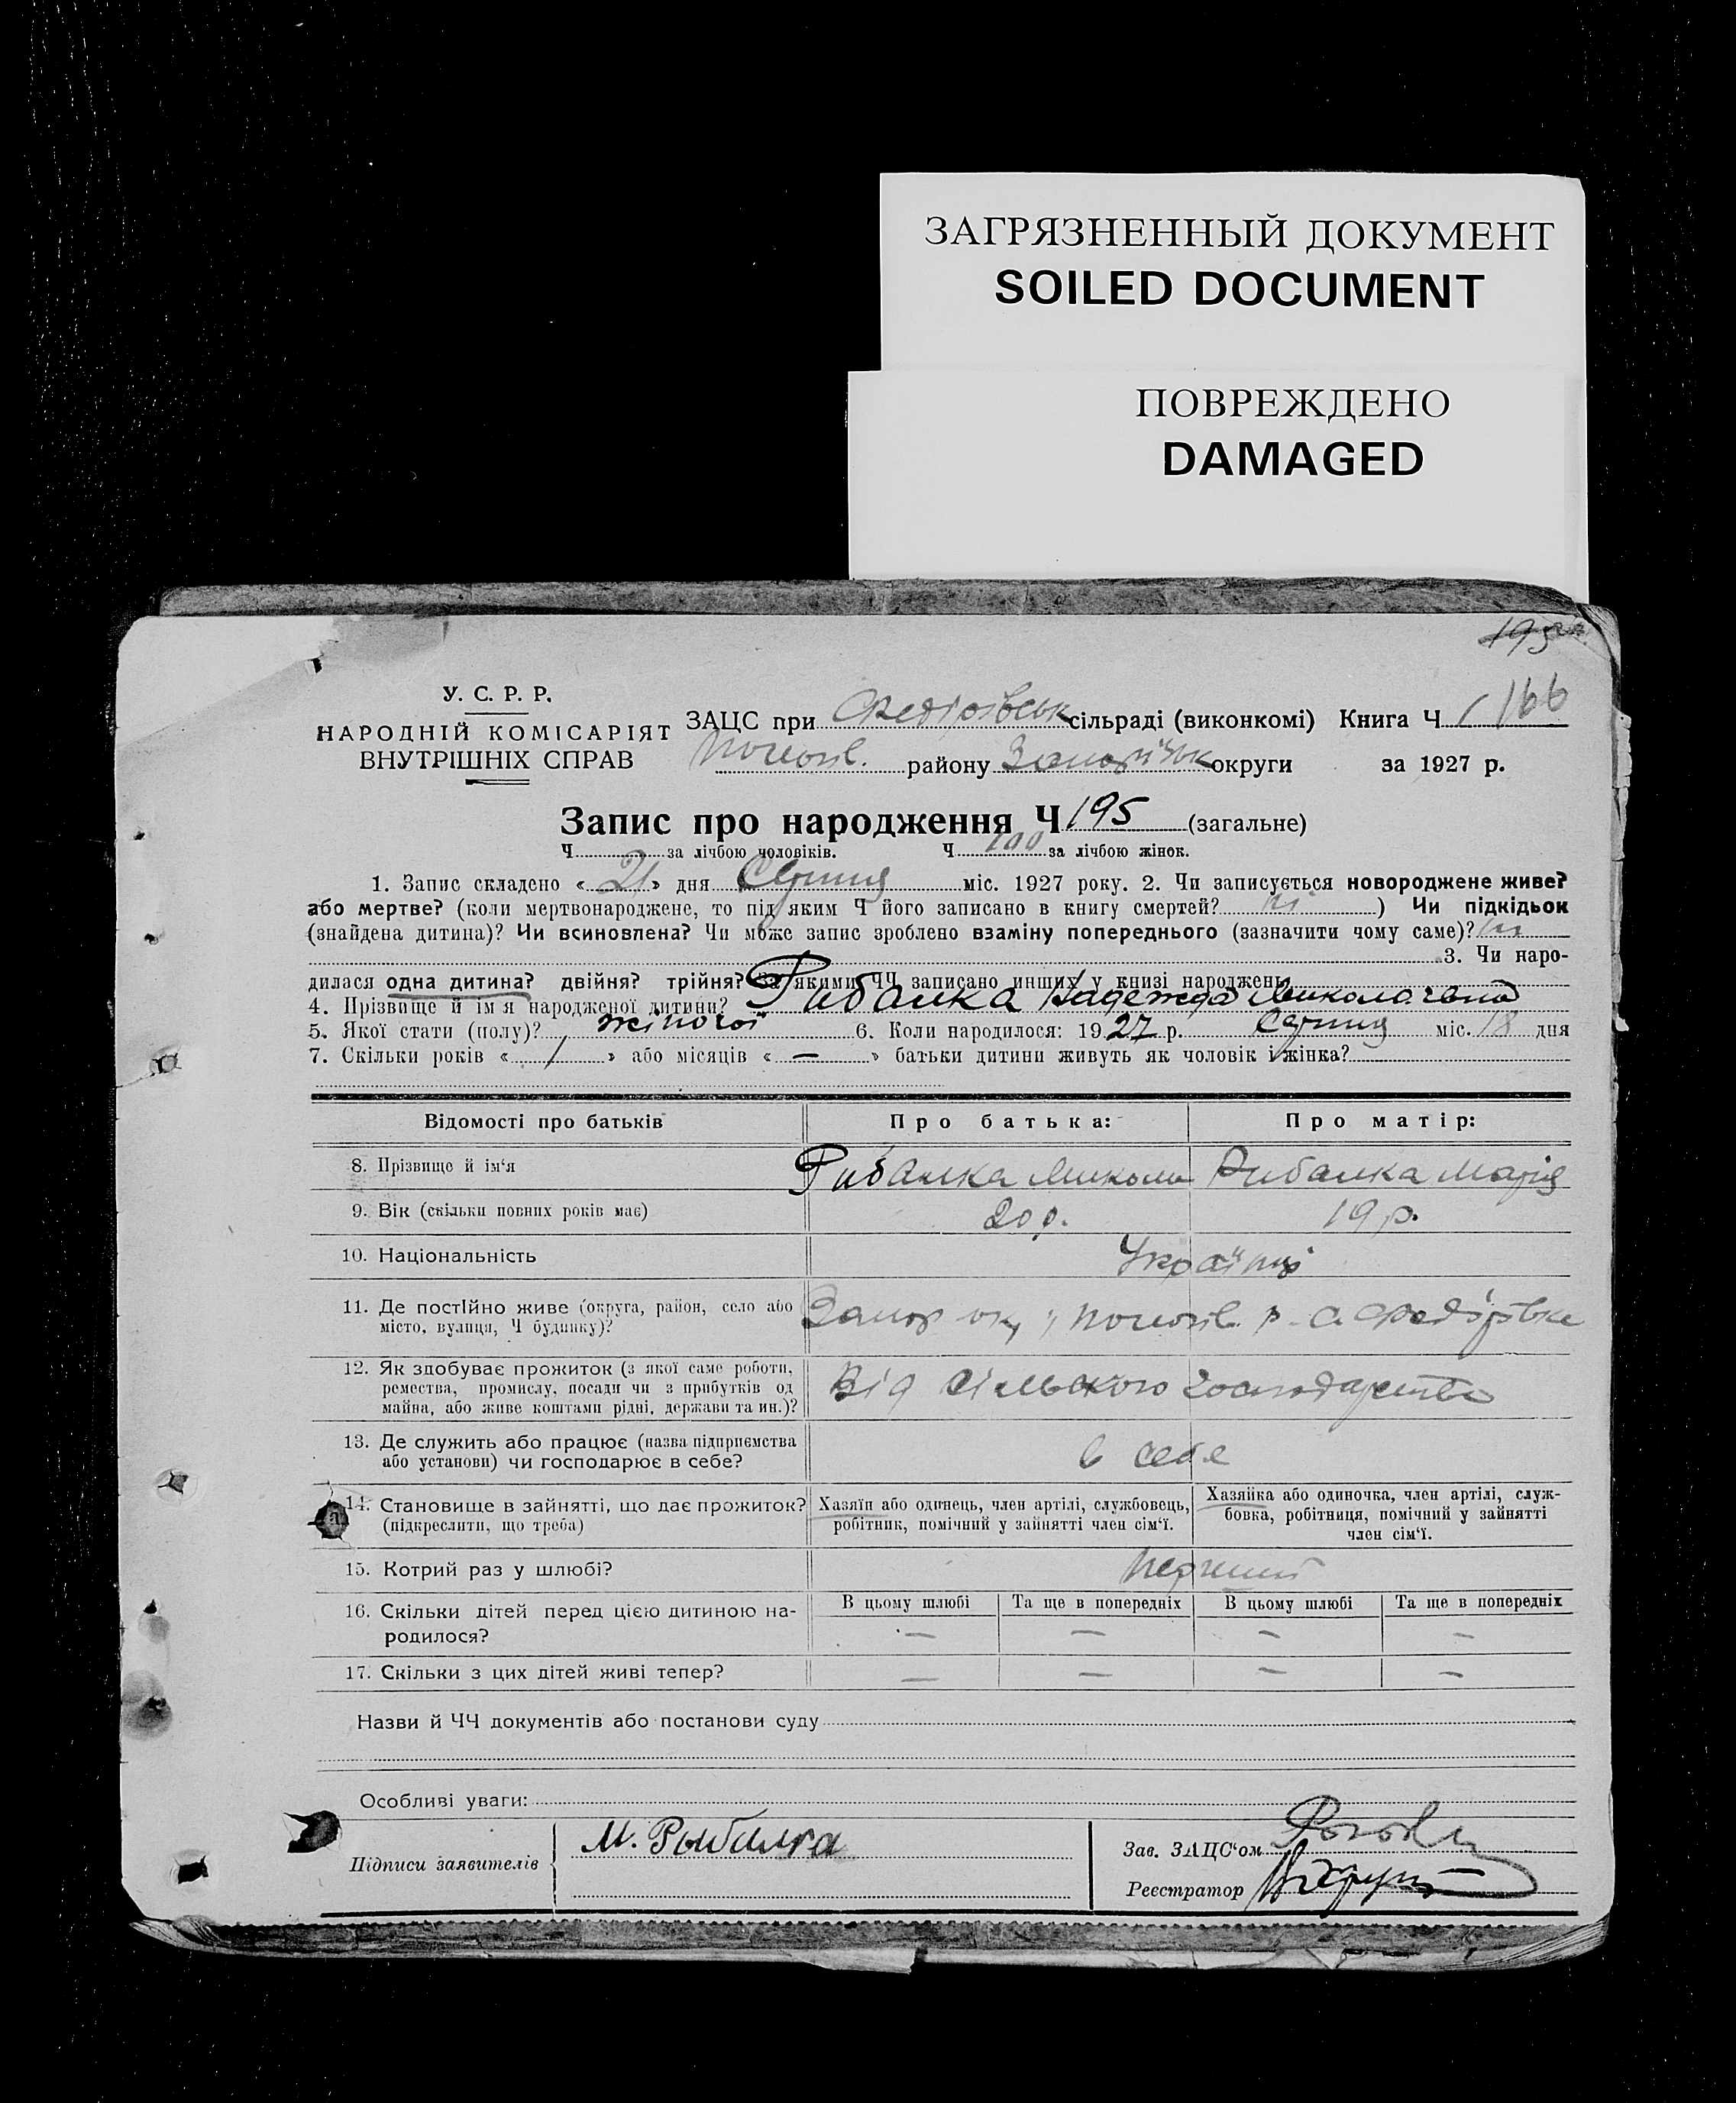 ЗАГРЯЗНЕННЫЙ ДОКУМЕНТ
SOILED DOCUMENT
ПОВРЕЖДЕНО
DAMAGED
195
166
У. С. Р. Р.
НАРОДНІЙ КОМІСАРІЯТ
ВНУТРІШНІХ СПРАВ
ЗАЦС при Федорівськ сільраді (виконкомі) Книга Ч
району Запоріжськ округи за 1927 р.
Запис про народження Ч 195 (загальне)
Ч за лічбою чоловіків. Ч 100 за лічбою жінок.
1. Запис складено « 21 » дня Серпня міс. 1927 року. 2. Чи записується новороджене живе?
або мертве? (коли мертвонароджене, то під яким Ч його записано в книгу смертей? ні ) Чи підкідьок
(знайдена дитина)? Чи всиновлена? Чи може запис зроблено взаміну попереднього (зазначити чому саме)? ні
3. Чи наро-
дилася одна дитина? двійня? трійня? За якими ЧЧ записано инших у книзі народжень
4. Прізвище й ім'я народженої дитини? Рибалка Надежда Миколаевна
5. Якої стати (полу)? жіночої 6. Коли народилося: 1927 р. Серпня міс. 18 дня
7. Скільки років « 1 » або місяців « — » батьки дитини живуть як чоловік і жінка?
Відомості про батьків Про батька: Про матір:
8. Прізвище й ім'я Рибалка Микола Рибалка Марія
9. Вік (скільки повних років має) 20 р. 19 р.
10. Національність Українці
11. Де постійно живе (округа, район, село або
місто, вулиця, Ч будинку)? Запор окр р. с. Федорівка
12. Як здобуває прожиток (з якої саме роботи,
ремества, промислу, посади чи з прибутків од
майна, або живе коштами рідні, держави та ин.)? Від сільского господарства
13. Де служить або працює (назва підприємства
або установи) чи господарює в себе? в себе
14. Становище в зайнятті, що дає прожиток?
(підкреслити, що треба)
Хазяїн або одинець, член артілі, службовець,
робітник, помічний у зайнятті член сім'ї.
Хазяйка або одиночка, член артілі, служ-
бовка, робітниця, помічний у зайнятті
член сім'ї.
15. Котрий раз у шлюбі? перший
16. Скільки дітей перед цією дитиною на-
родилося?
В цьому шлюбі Та ще в попередніх В цьому шлюбі Та ще в попередніх
— — — —
17. Скільки з цих дітей живі тепер? — — — —
Назви й ЧЧ документів або постанови суду
Особливі уваги:
Підписи заявителів М. Рыбалка
Зав. ЗАЦС'ом
Реєстратор